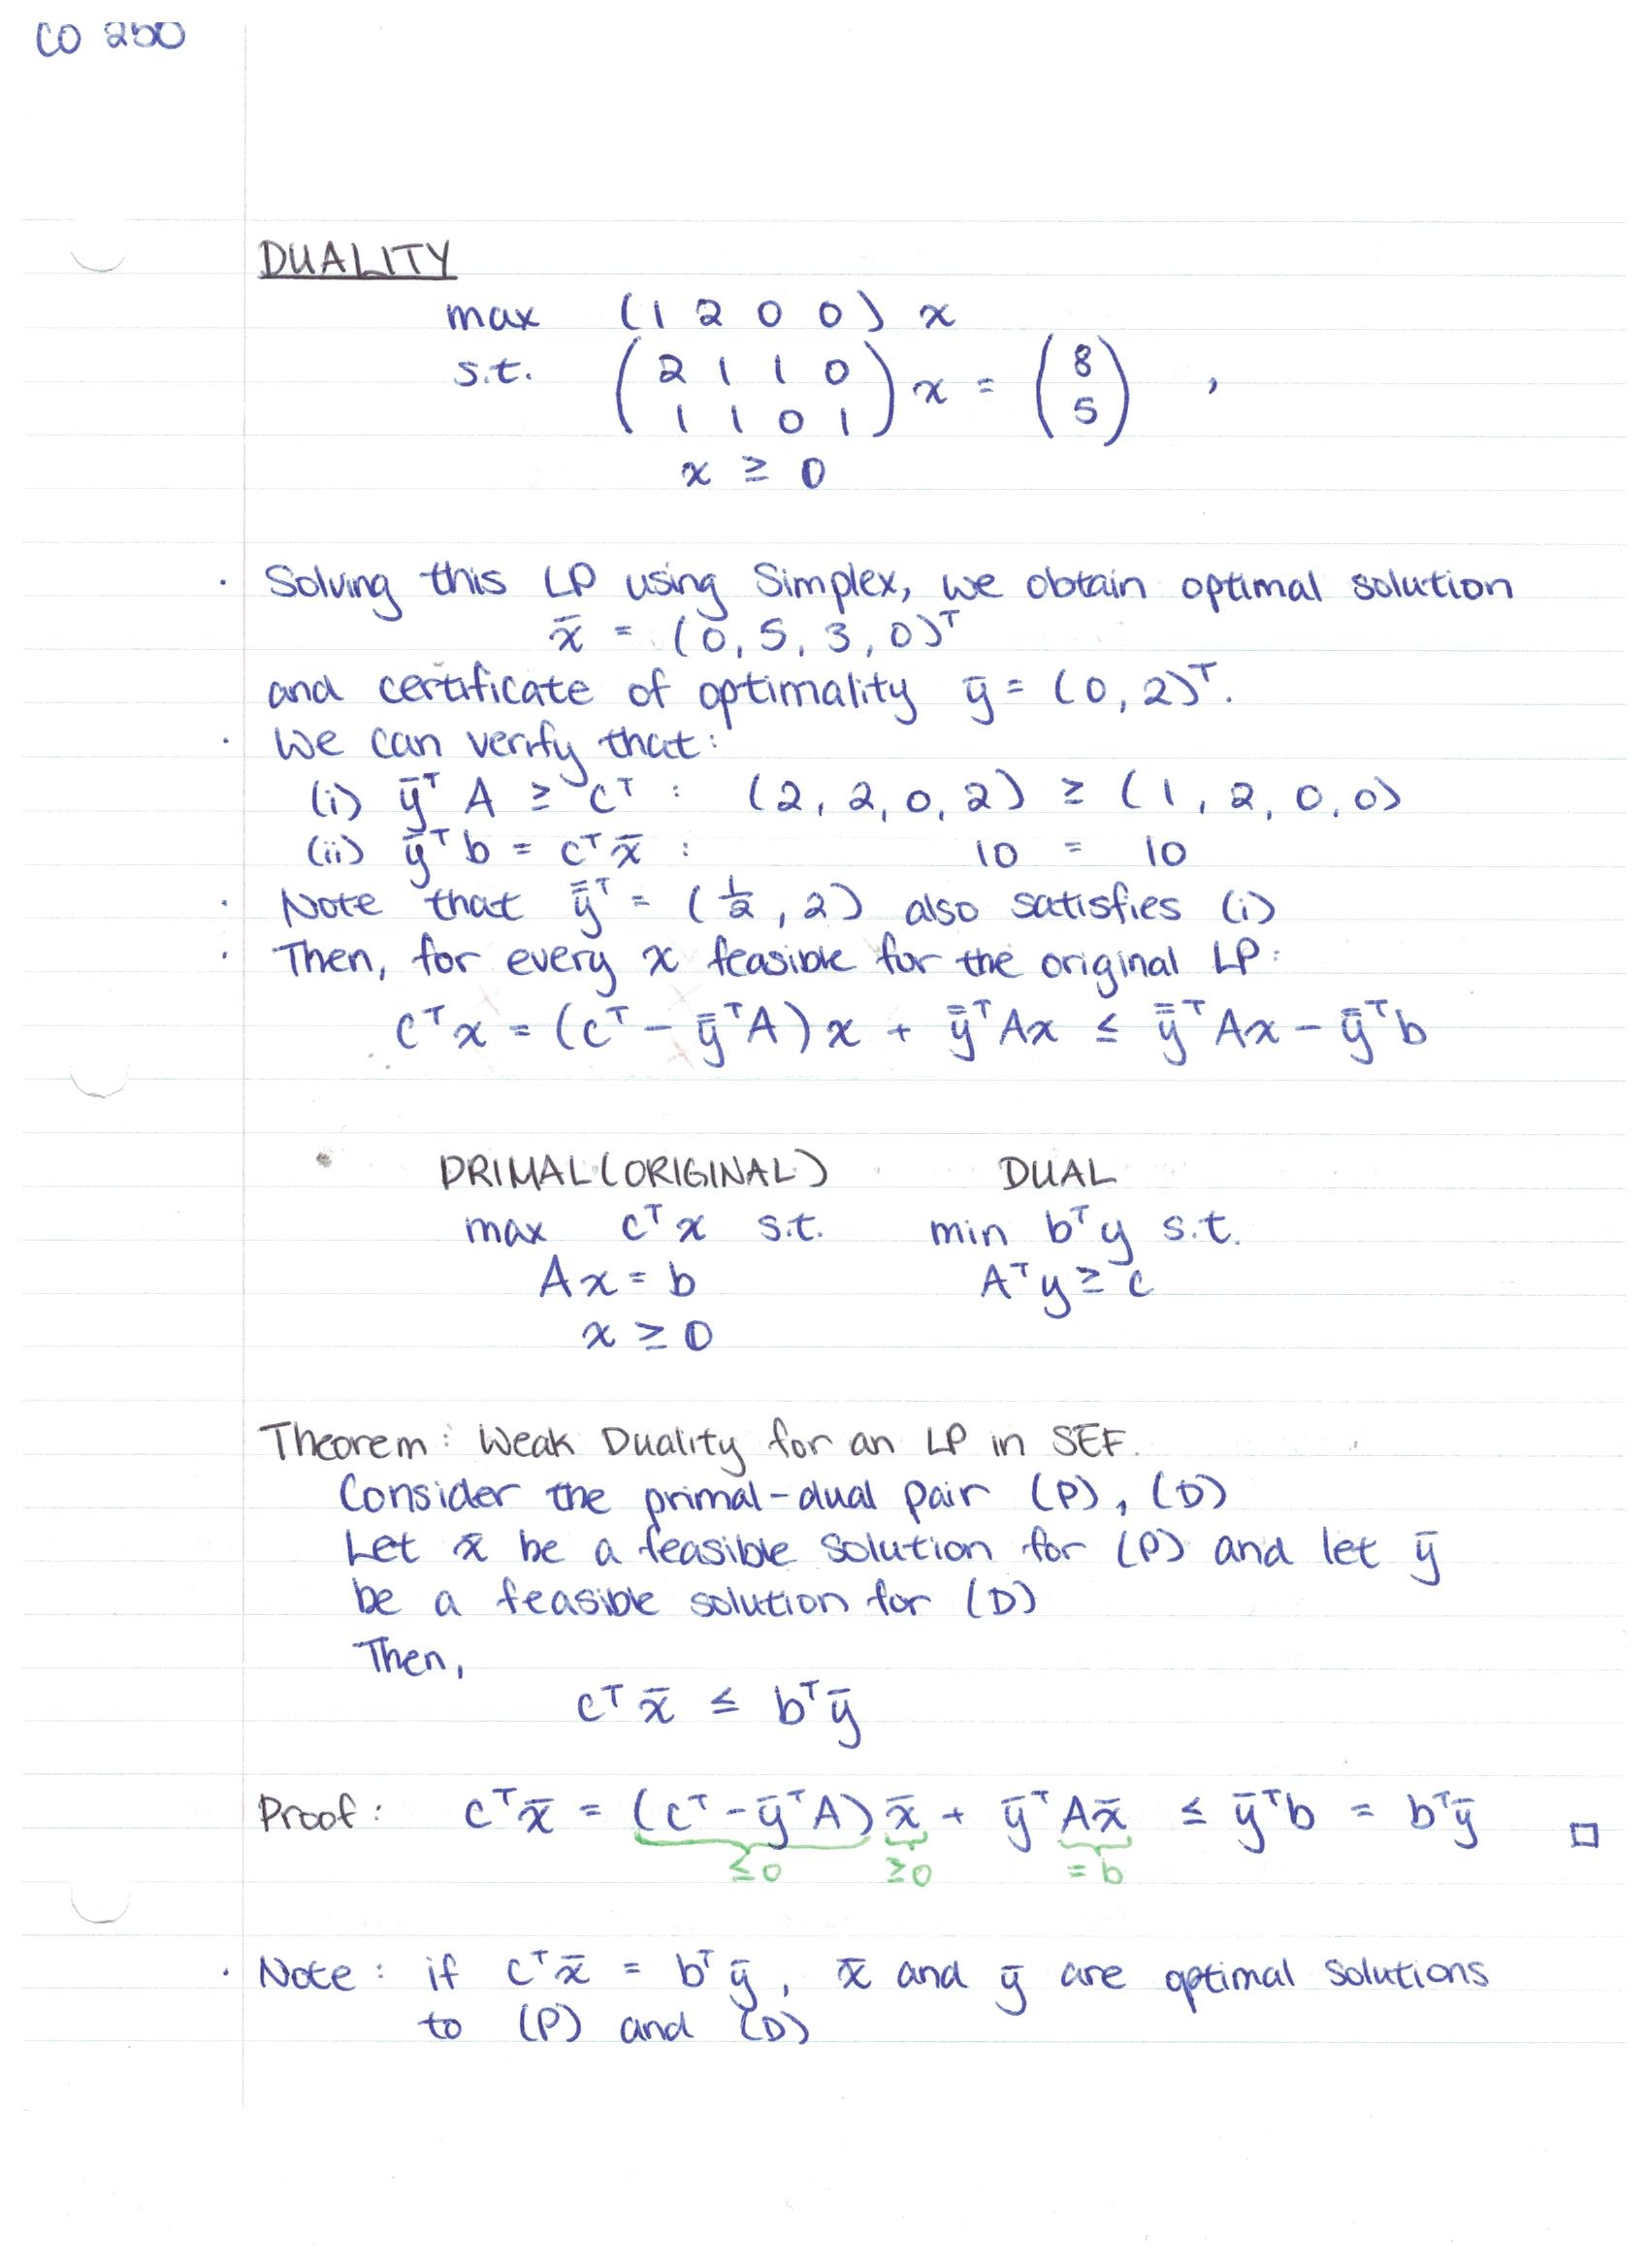 CO 250
DUALITY
max (1 2 0 0) x
s.t. (2 1 1 0
1 1 0 1) x = (8
5) ,
x ≥ 0
· Solving this LP using Simplex, we obtain optimal solution
x̄ = (0, 5, 3, 0)ᵀ
and certificate of optimality ȳ = (0, 2)ᵀ.
· We can verify that:
(i) ȳᵀ A ≥ cᵀ : (2, 2, 0, 2) ≥ (1, 2, 0, 0)
(ii) ȳᵀb = cᵀx̄ : 10 = 10
· Note that ȳ̄ᵀ = (1/2, 2) also satisfies (i)
· Then, for every x feasible for the original LP:
cᵀx = (cᵀ - ȳ̄ᵀA) x + ȳ̄ᵀAx ≤ ȳ̄ᵀAx - ȳ̄ᵀb
PRIMAL (ORIGINAL) DUAL
max cᵀx s.t. min bᵀy s.t.
Ax = b Aᵀy ≥ c
x ≥ 0
Theorem: Weak Duality for an LP in SEF.
Consider the primal-dual pair (P), (D)
Let x̄ be a feasible solution for (P) and let ȳ
be a feasible solution for (D)
Then,
cᵀx̄ ≤ bᵀȳ
Proof: cᵀx̄ = (cᵀ - ȳᵀA) x̄ + ȳᵀAx̄ ≤ ȳᵀb = bᵀȳ □
≤0 ≥0 = b
· Note: if cᵀx̄ = bᵀȳ, x̄ and ȳ are optimal solutions
to (P) and (D)